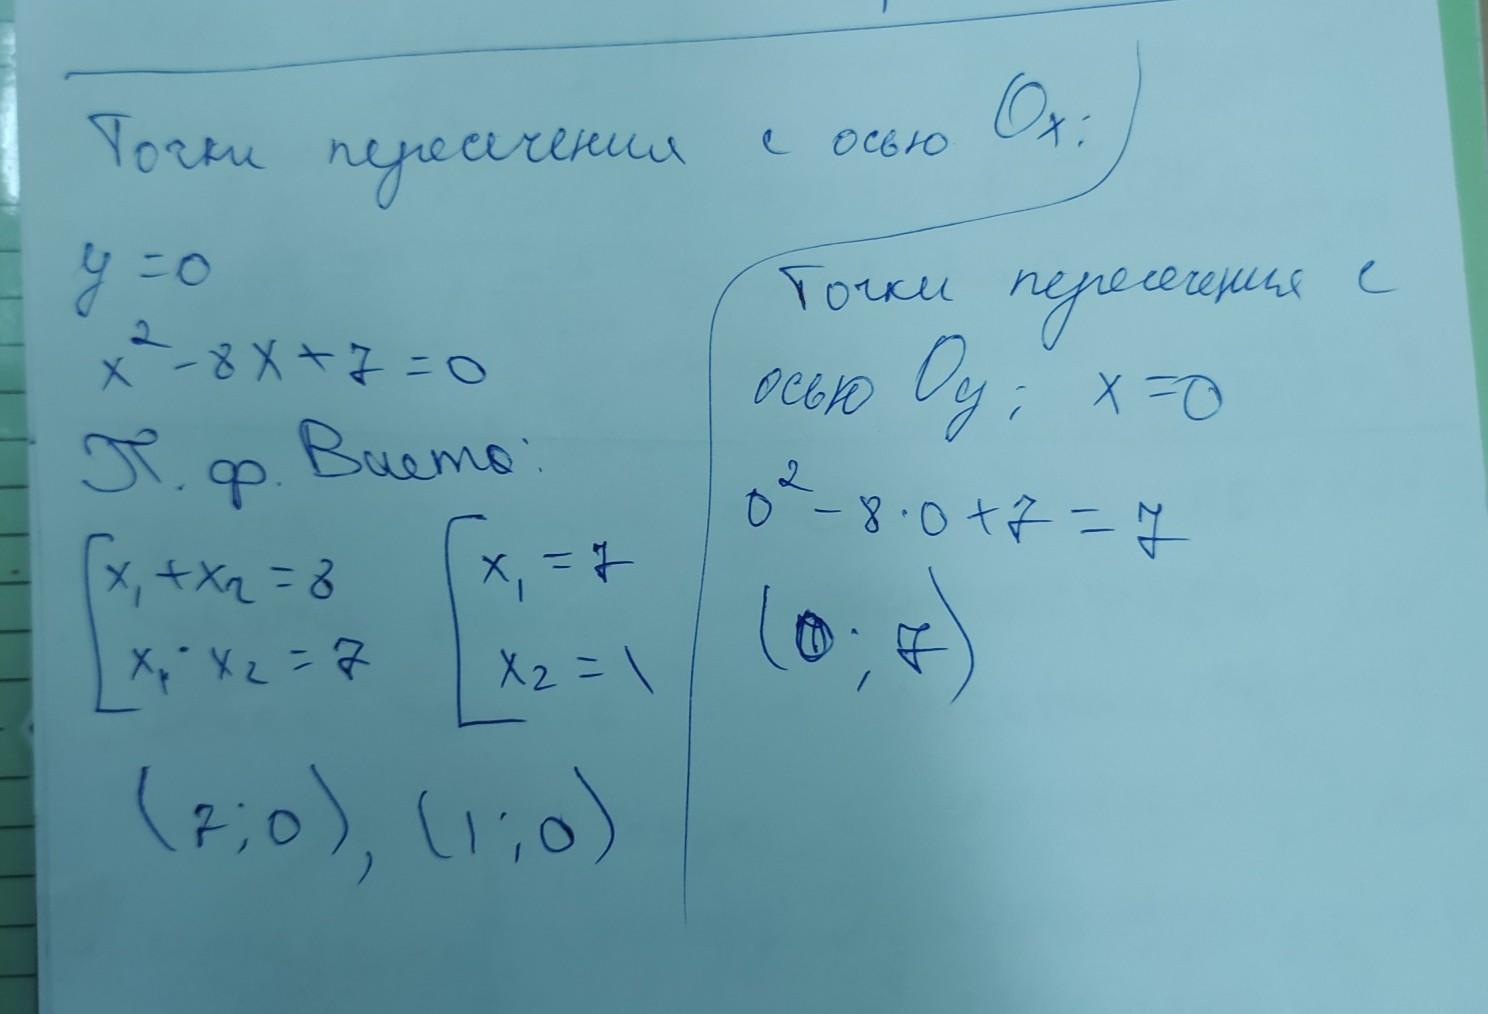 Точки пересечения с осью Ox:
y = 0
x² - 8x + 7 = 0
Т. ф. Виета:
[ x₁ + x₂ = 8
x₁ · x₂ = 7
[ x₁ = 7
x₂ = 1
(7; 0), (1; 0)
Точки пересечения с
осью Oy; x = 0
0² - 8 · 0 + 7 = 7
(0; 7)